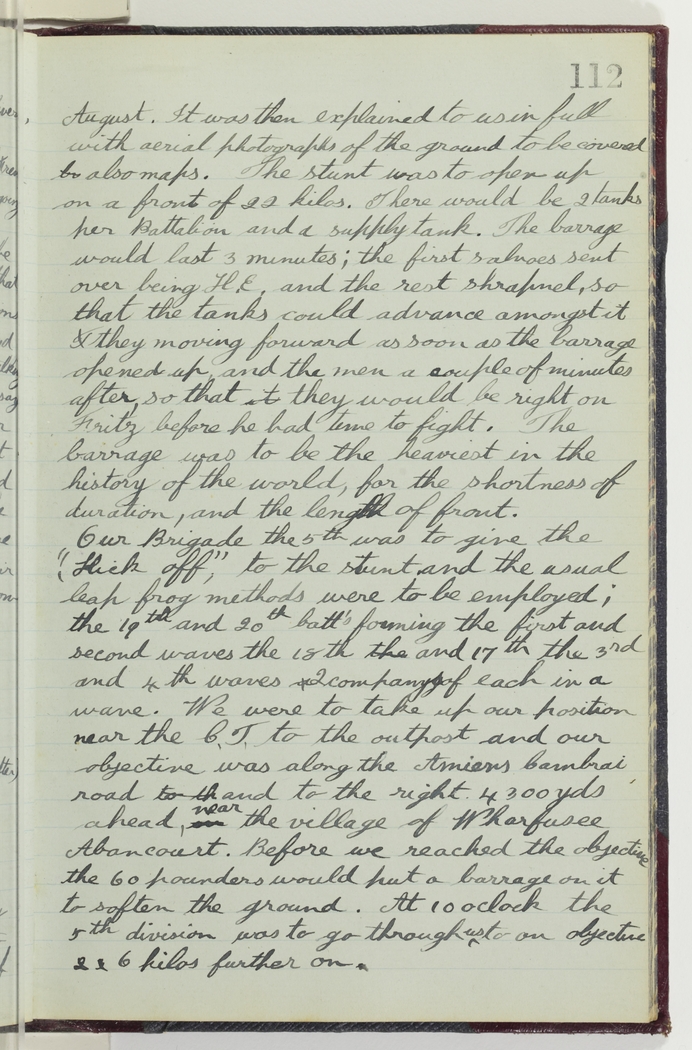 112
August. It was then explained to us in full
with aerial photographs of the ground to be covered
by also maps. The stunt was to open up
on a front of 22 kilos. There would be 2 tanks
per Battalion and a supply tank. The barrage
would last 3 minutes; the first salvoes sent
over being H.E. and the rest shrapnel, so
that the tanks could advance amongst it
& they moving forward as soon as the barrage
opened up, and the men a couple of minutes
after, so that it they would be right on
Fritz before he had time to fight. The
barrage was to be the heaviest in the
history of the world, for the shortness of
duration, and the length of front.
Our Brigade the 5th was to give the
"Kick off", to the stunt and the usual
leap frog methods were to be employed;
the 19th and 20th batt's forming the first and
second waves the 18th the and 17th the 3rd
and 4th waves 2 companys of each in a
wave. We were to take up our position
near the C.T. to the outpost and our
objective was along the Amiens Cambrai
road to th and to the right. 4300 yds
ahead, near the village of Wharfusee
Abancourt. Before we reached the objective
the 60 pounders would put a barrage on it
to soften the ground. At 10 oclock the
5th division was to go through us to an objective
6 kilos further on.